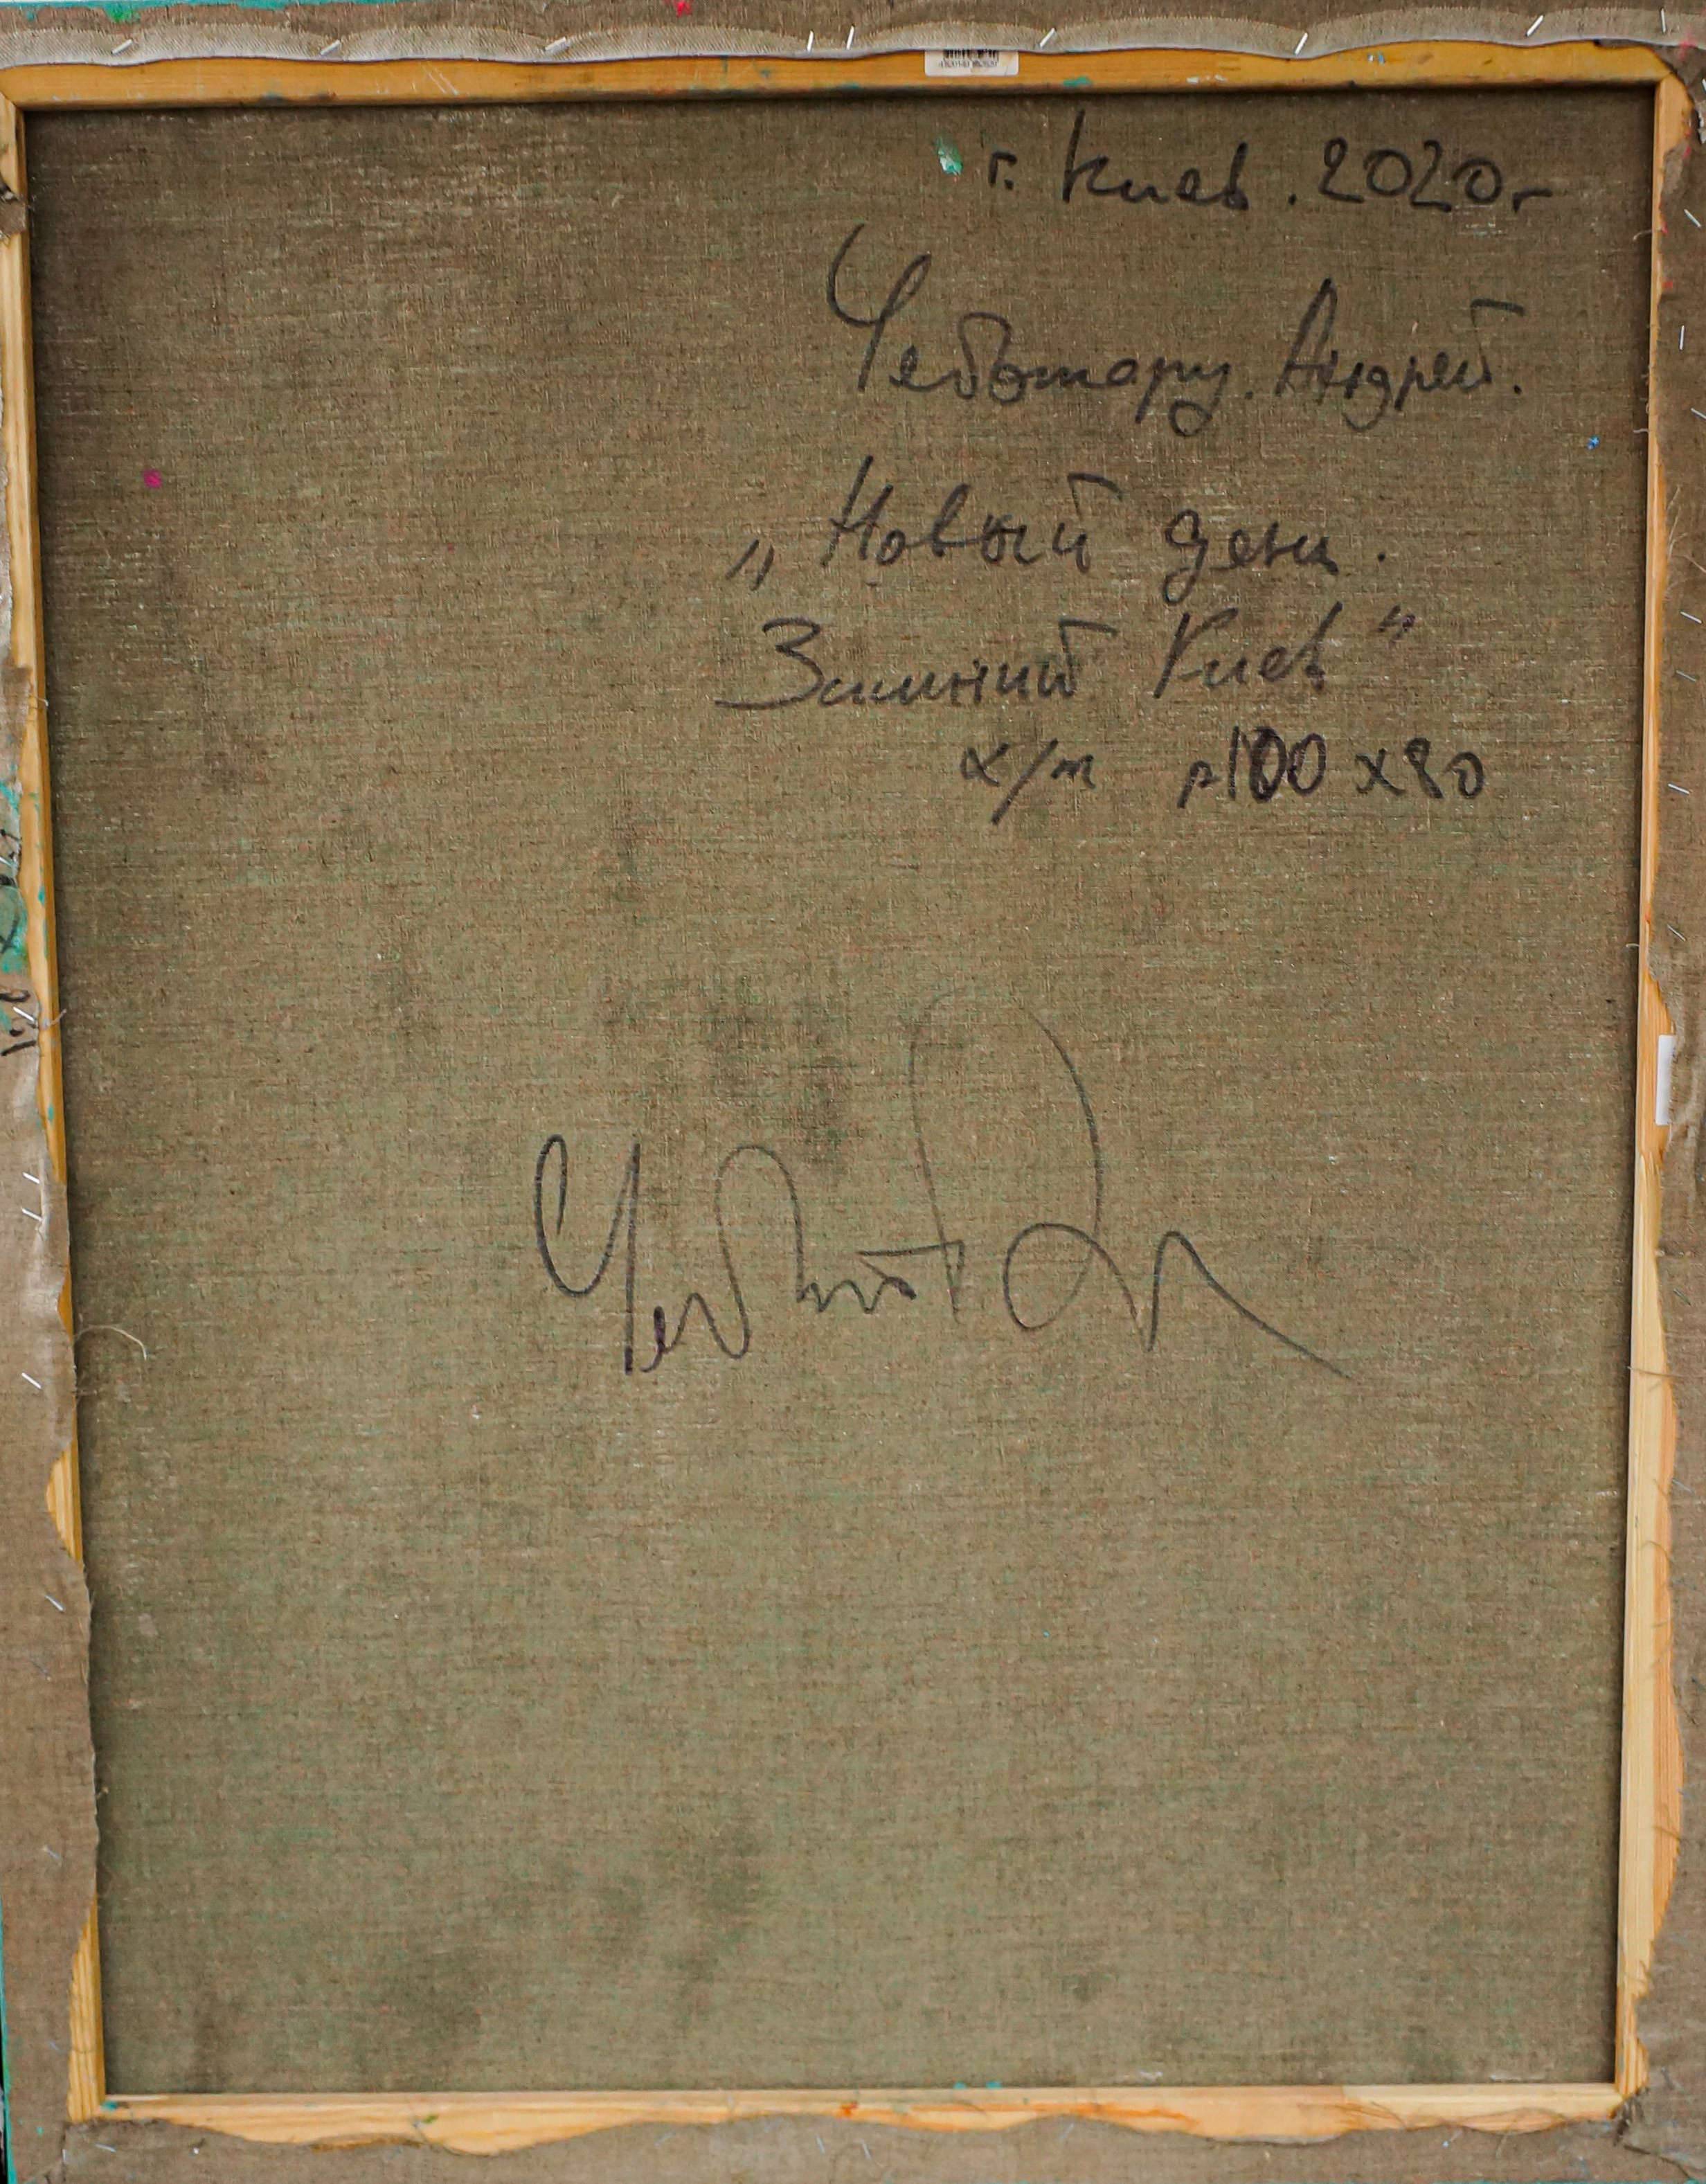 г. Киев. 2020г
Чеботару. Андрей.
„Новый день.
Зимний Киев"
х/м р100х80